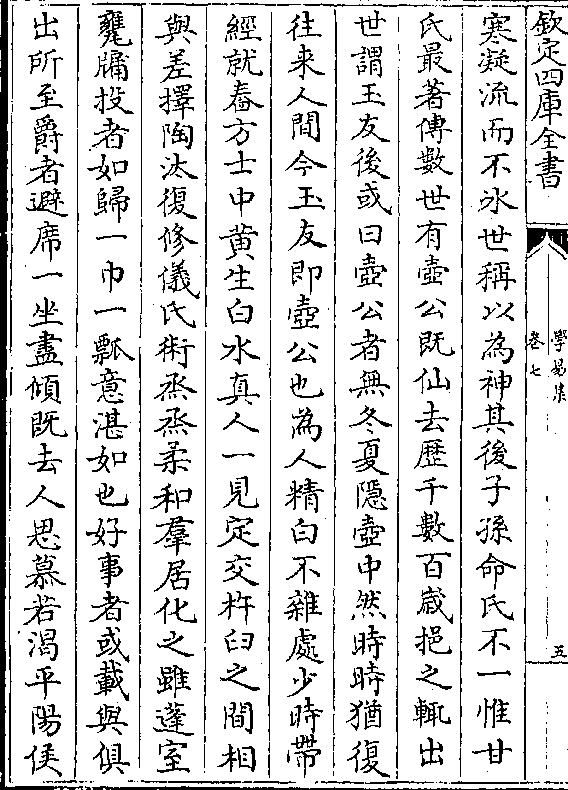 欽定四庫全書
學易集
卷七
五
寒凝流而不冰世稱以為神其後子孫命氏不一惟甘
氏最著傳數世有壺公既仙去歴千數百歳挹之輒出
世謂玉友後或曰壺公者無冬夏隠壺中然時時猶復
往来人間今玉友即壺公也為人精白不雜處少時帶
經就舂方士中黄生白水真人一見定交杵臼之間相
與差擇陶汰復修儀氏術烝烝柔和羣居化之雖蓬室
甕牖投者如歸一巾一瓢意湛如也好事者或載與俱
出所至爵者避席一坐盡傾既去人思慕若渴平陽侯